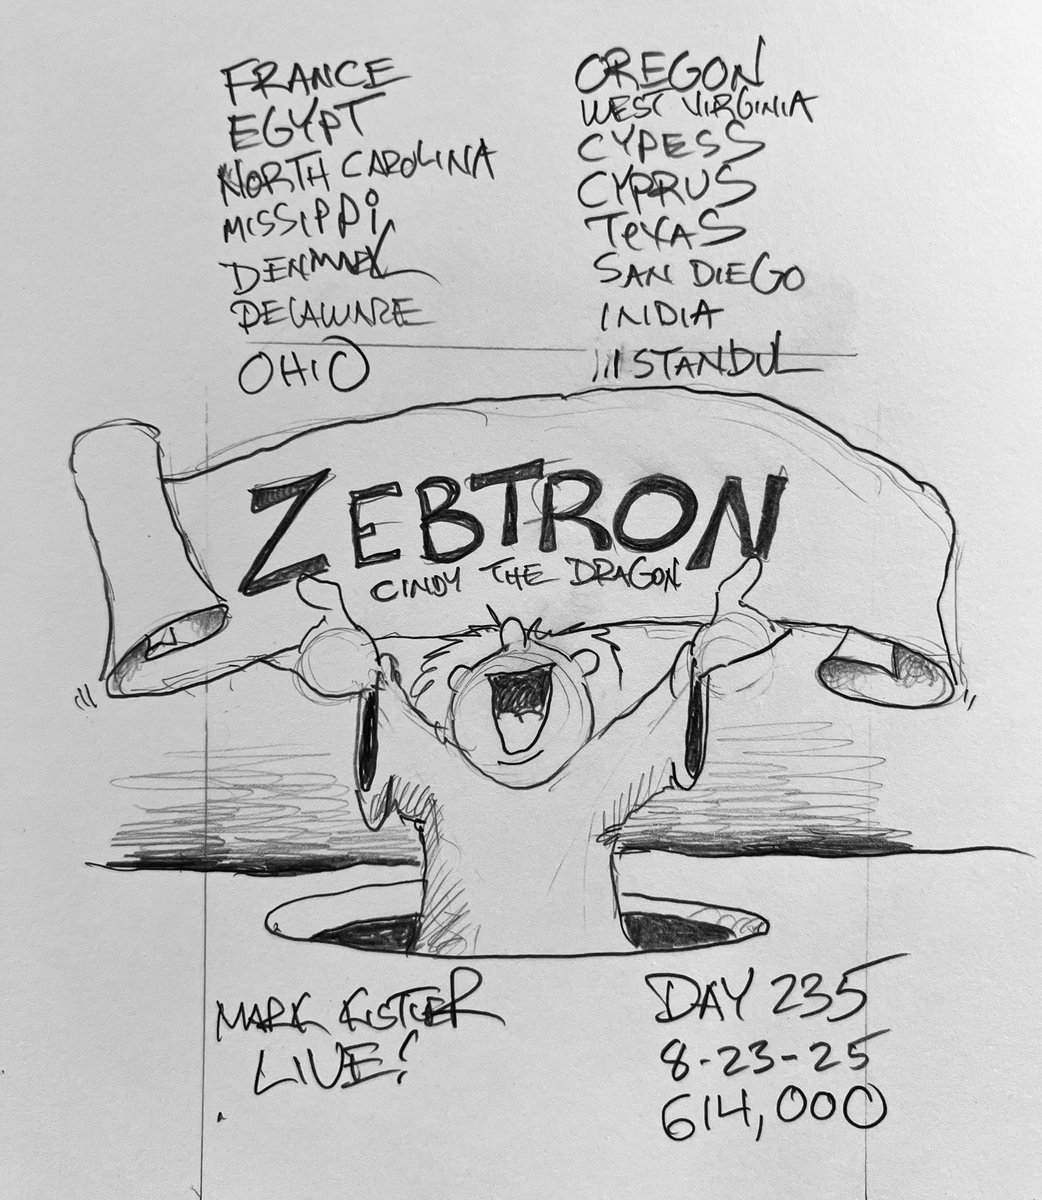 FRANCE
EGYPT
NORTH CAROLINA
MISSIPPi
DENMARK
DELAWARE
OHIO
OREGON
WEST VIRGINIA
CYPESS
CYPRUS
TeXAS
SAN DIEGO
INIDIA
ISTANDUL
ZEBTRON
CINDY THE DRAGON
MARK KISTLER
LIVE!
DAY 235
8-23-25
614,000